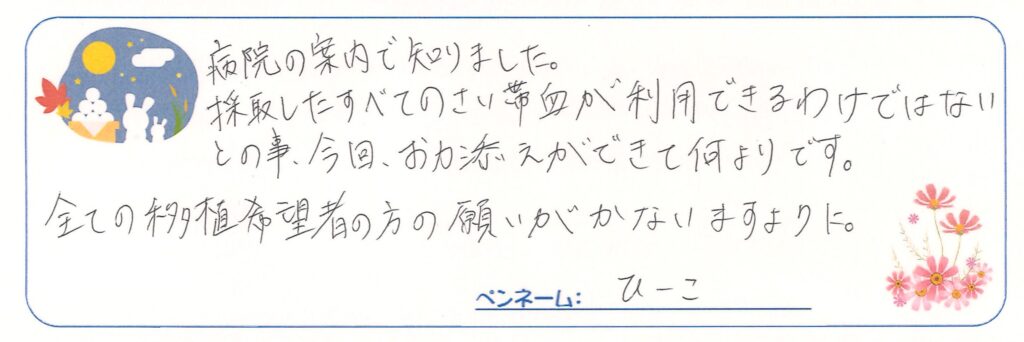 病院の案内で知りました。
採取したすべてのさい帯血が利用できるわけではない
との事、今回、お力添えができて何よりです。
全ての移植希望者の方の願いがかないますように。
ペンネーム: ひーこ